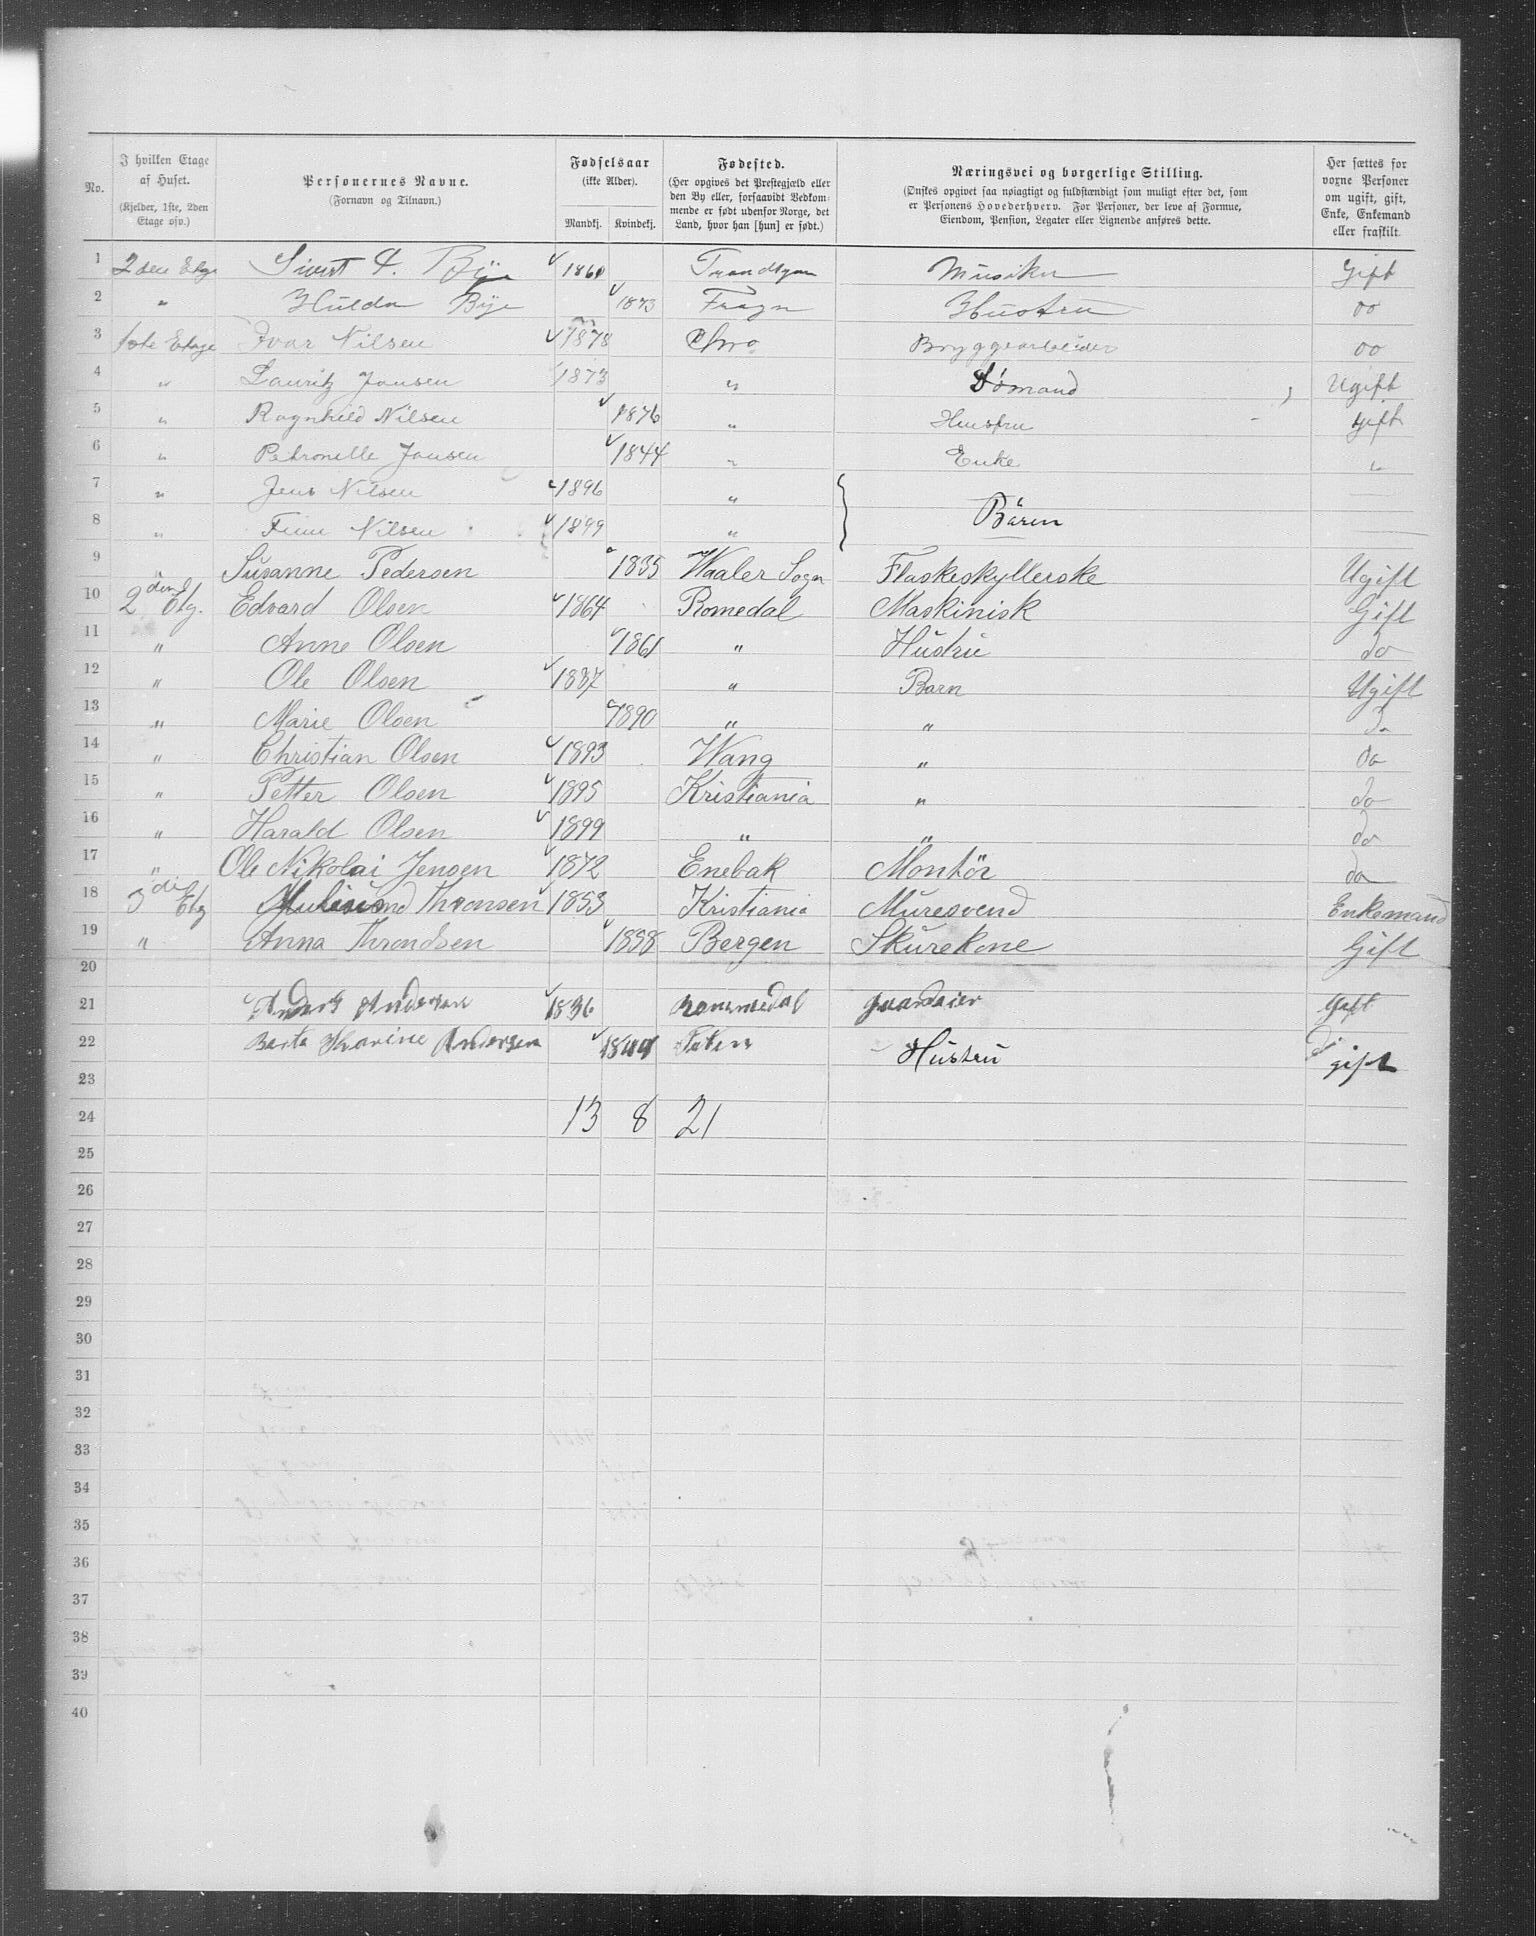 No.
I hvilken Etage af Huset.
(Kjelder, 1ste, 2den Etage osv.)
Personernes Navne.
(Fornavn og Tilnavn.)
Fødselsaar
(ikke Alder).
Mandkj. Kvindekj.
Fødested.
(Her opgives det Prestegjæld eller
den By eller, forsaavidt Vedkom-
mende er født udenfor Norge, det
Land, hvor han [hun] er født.)
Næringsvei og borgerlige Stilling.
(Ønskes opgivet saa nøiagtigt og fuldstændigt som muligt efter det, som
er Personens Hovederhverv. For Personer, der leve af Formue,
Eiendom, Pension, Legater eller Lignende anføres dette.
Her sættes for
vorne Personer
om ugift, gift,
Enke, Enkemand
eller fraskilt.
1 2den Etge Sivert P. Bye 1860 Trondhjem Musiker Gift
2 " Hulda Bye 1873 Frogn Hustru do
3 1ste Etage Ivar Nilsen 1878 Chro Bryggearbeider do
4 " Lauritz Jansen 1873 " Sømand Ugift
5 " Ragnhild Nilsen 1876 " Hustru Gift
6 " Petronelle Jansen 1844 " Enke "
7 " Jens Nilsen 1896 "
8 " Finn Nilsen 1899 " Bören
9 " Susanne Pedersen 1835 Waaler Sogn Flaskeskyllerske Ugift
10 2den Etg. Edvard Olsen 1864 Romedal Maskinisk Gift
11 " Anne Olsen 1861 " Hustru do
12 " Ole Olsen 1887 " Barn Ugift
13 " Marie Olsen 1890 " " do
14 " Christian Olsen 1893 Wang " do
15 " Petter Olsen 1895 Kristiania " do
16 " Harald Olsen 1899 " " do
17 " Ole Nikolai Jensen 1872 Enebak Montör do
18 3die Etg Thronsen 1853 Kristiania Muresvend Enkemand
19 " Anna Throndsen 1858 Bergen Skurekone Gift
20
21 Anders Andersen 1836 Romedal Gift
22 Berta Karine Andersen 1844 Toten Hustru gift
23
24 13 8 21
25
26
27
28
29
30
31
32
33
34
35
36
37
38
39
40